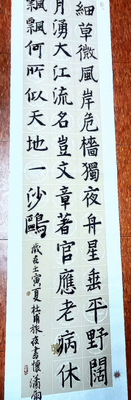 細草微風岸危檣獨夜舟星垂平野闊
月湧大江流名豈文章著官應老病休
飄飄何所似天地一沙鷗
歲在壬寅夏杜甫旅夜書懷瀟雨